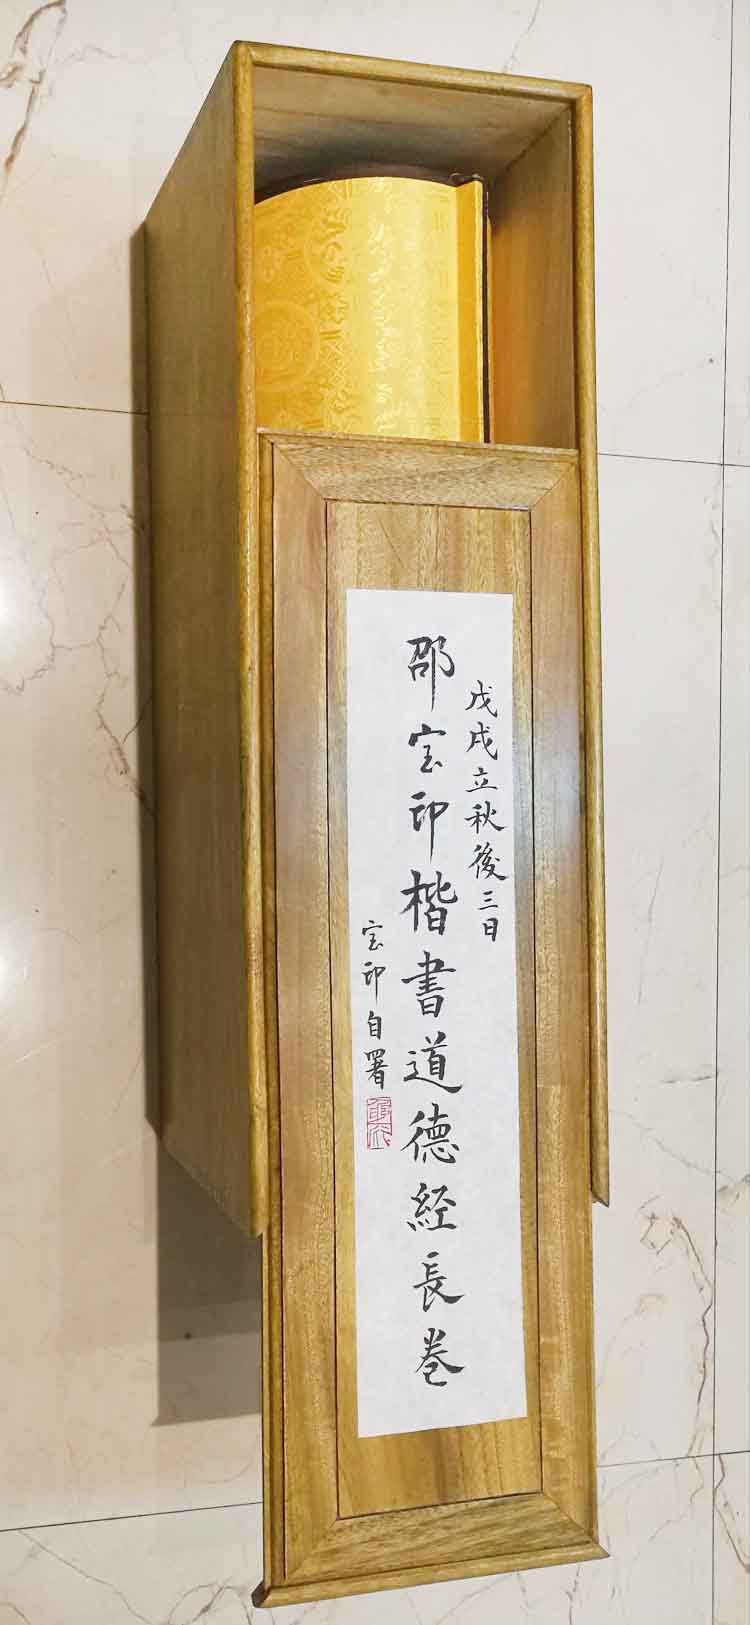 戊戌立秋後三日
邵宝印楷書道德経長卷
宝印自署